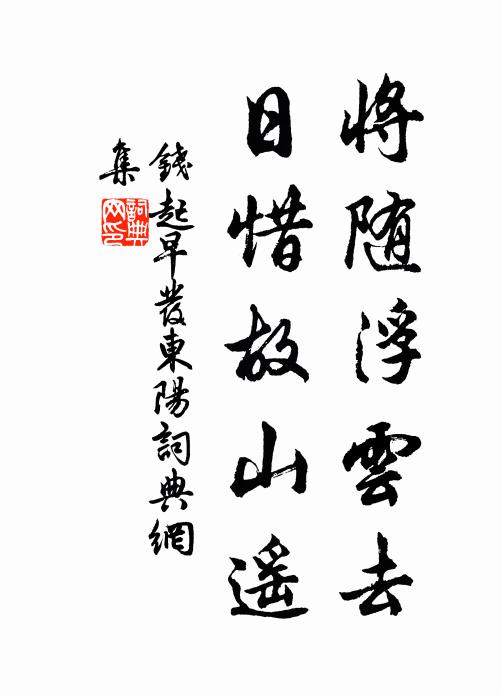 将随浮雲去
日惜故山遥
錢起早發東陽詞典網
集
詞典
网印